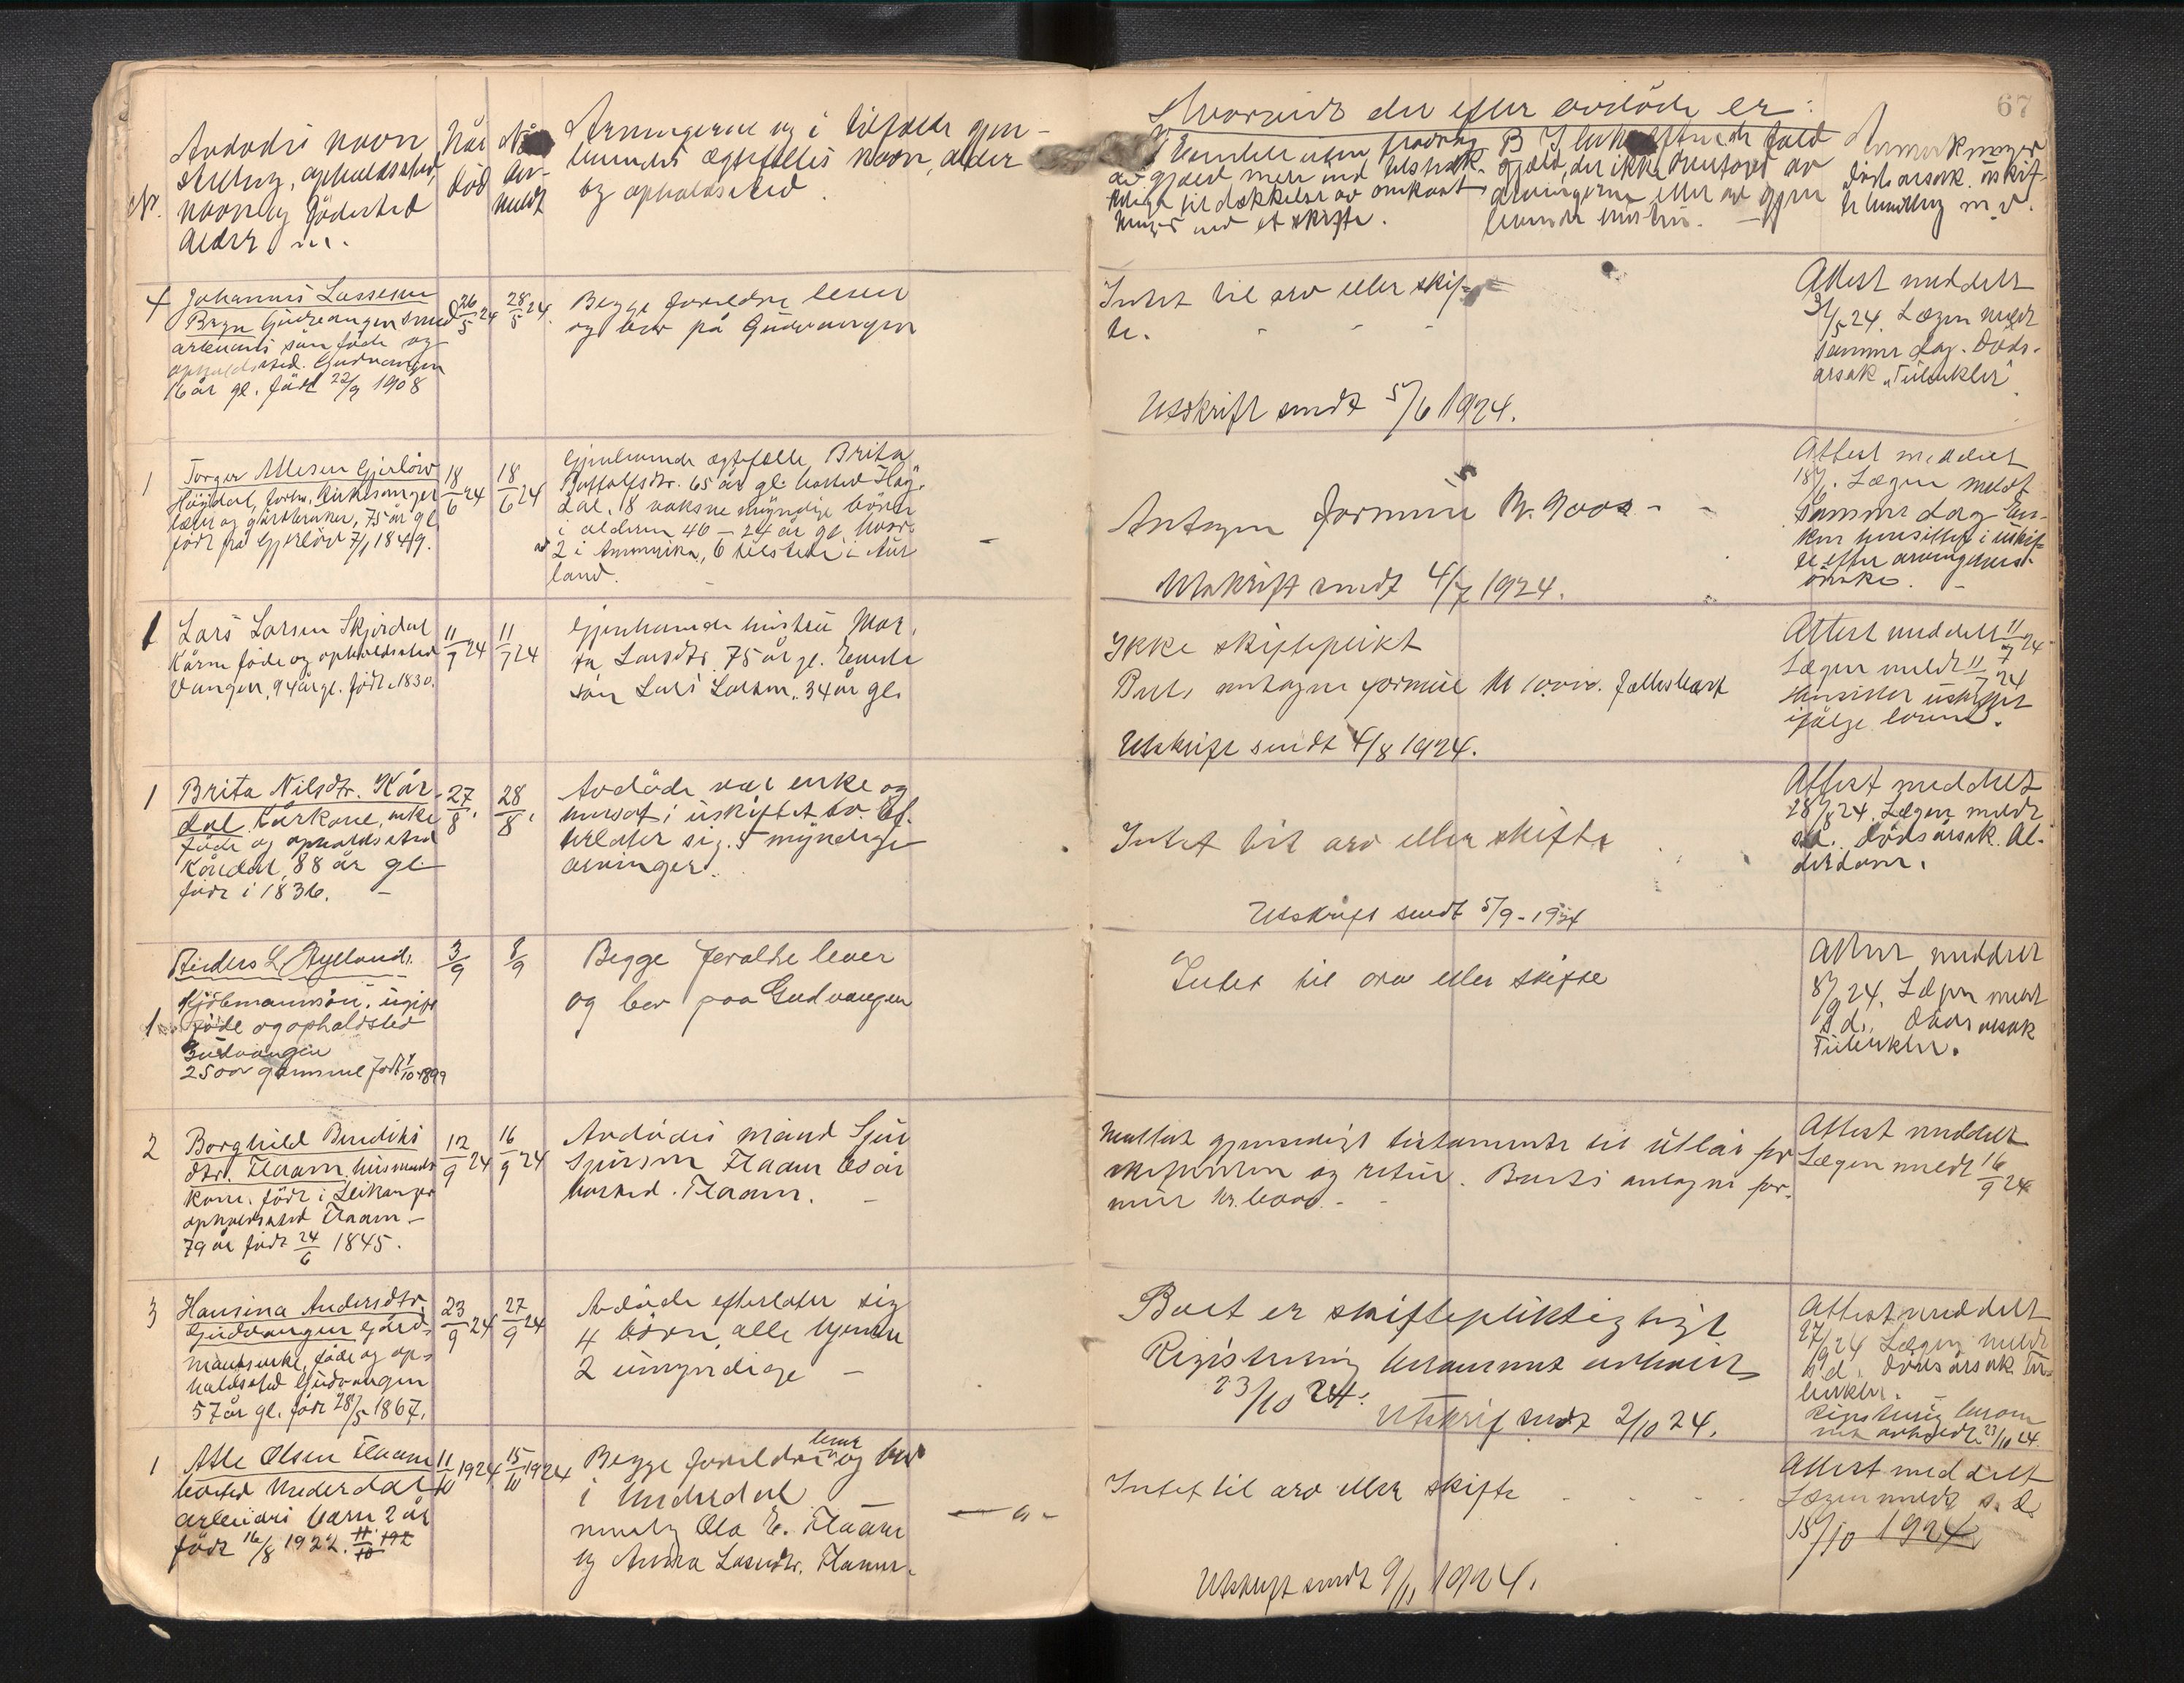 67
Nr.
Avdødes navn
stilling, opholdssted,
navn og fødested
alder m.
Når
død
Når
an-
meldt
Arvingernes og i tilfælde gjen-
levendes ægtefælles navn, alder
og opholdssted.
Hvorvidt der efter avdøde er:
av gjæld mere end tilstræk-
kelige til dækkelse av omkost
ninger ved et skifte.
B I
gjæld, der ikke overtages av
arvingerne eller av gjen
levende
Anmerkninger
Dødsårsak. uskif-
te m.v.
4
Johannes Lassesen
Bryn Gudvangen
arbeiders søn føde og
opholdssted. Gudvangen
16 år gl. født 22/9 1908
26/5 24
28/5 24.
Begge foreldre lever
og bor på Gudvangen
Intet til arv eller skif-
te.
Utskrift sendt 5/6 1924.
Attest meddelt
31/5 24. Lægen meldt
samme dag. Døds-
årsak "Tuberkler"
1
Torger Ellesen Gjerløw
Høydal, forhv. kirkesanger
lærer og gårdbruker, 75 år gl.
født på Gjerløw 7/1 1849.
18/6 24
18/6 24
Gjenlevende ægtefælle Brita
65 år gl. bosted Høy-
dal. 8 voksne myndige børn
i alderen 40 — 24 år gl. hvor-
av 2 i Ammerika, 6 tilstede i Aur
land.
Antagen formue kr.
Utskrift sendt 4/7 1924.
Attest meddelt
18/6. Lægen meldt
samme dag. En-
ken hensitter i uskif-
te efter arvingernes
ønske.
1
Lars Larsen Skjerdal
Kårm. føde og opholdssted
Vangen, 94 år gl. født 1830.
11/7 24
11/7 24
Gjenlevende hustru Mar-
ta Larsdtr. 75 år gl. Eneste
søn Lars Larsen. 34 år gl.
Ikke skiftepliktigt
Boets antagne formue kr. 1000. fællesbært
Utskrift sendt 4/8 1924.
Attest meddelt 11/7 24
Lægen meldt 11/7 24
Hensitter uskiftet
ifølge loven.
1
Brita Nilsdtr. Kår-
dal. Kårkone, enke
føde og opholdssted
Kårdal, 88 år gl.
født i 1836.
27/8.
28/8.
Avdøde var enke og
hensat i uskiftet bo. Ef-
terlater sig. 5 myndige
arvinger.
Intet til arv eller skifte
Utskrift sendt 5/9 - 1924
Attest meddelt
28/8 24. Lægen meldt
s.d. Dødsårsak. Al-
derdom.
1.
Anders L. Hylland.
Kjøbmannsøn, ugift
føde og opholdsted
Gudvangen
25 aar gammel født 4/10 1899
3/9
8/9
Begge foreldre lever
og bor paa Gudvangen
Intet til arv eller skifte
Attest meddelt
8/9 24. Lægen meldt
s.d. Dødsårsak
Tuberkler.
2
Borghild Bendiks
dtr. Flaam, husmands
kone. født i Leikanger
opholdssted Flaam.—
79 år født 24/6 1845.
12/9 24
16/9 24
Avdødes mand Sjur
Sjursen Flaam
bosted. Flaam.
Mottat gjensidigt testamente til utlån for
skifteretten og retur. Boets antagne for-
mue kr. 6000.-
Attest meddelt
Lægen meldt 16/9 24
3
Hansina Andersdtr.
Gudvangen, gård-
mandsenke, føde og op-
holdssted Gudvangen
57 år gl. født 28/5 1867.
23/9 24
27/9 24
Avdøde efterlater sig
4 børn, alle hjemme
2 umyndige —
Boet er skiftepliktigtigt
Registrering berammet avholdt
23/10 24.
Utskrif sendt 2/10 24.
Attest meddelt
27/9 24 Lægen meldt
s.d. Dødsårsak Tu-
berkler.
Registrering beram
met avholdt 23/10 24.
1
Atle Olsen Flaam
bosted Underdal
arbeiders barn 2 år
født 16/8 1922. 11/10 192
11/10 1924.
15/10 1924
Begge foreldre lever og bor
i Underdal
nemlig Ola E. Flaam
og Anna Larsdtr. Flaam.
Intet til arv eller skifte
Utskrift sendt 9/11 1924.
Attest meddelt
Lægen meldt s.d.
15/10 1924